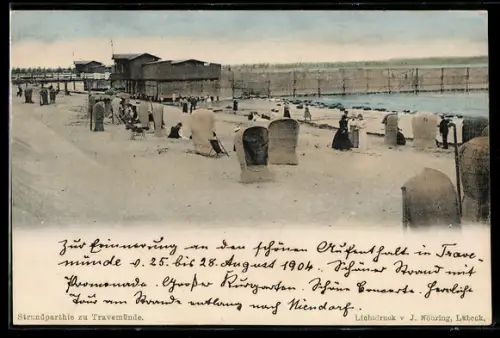 Zur Erinnerung an den schönen Aufenthalt in Trave-
münde v. 25. bis 28. August 1904. Schöner Strand mit
Promenada. Großer Kurgarten. Schöne Concerte. Herrliche
Tour am Strande entlang nach Niendorf.
Strandparthie zu Travemünde.
Lichtdruck v J. Nöhring, Lübeck.